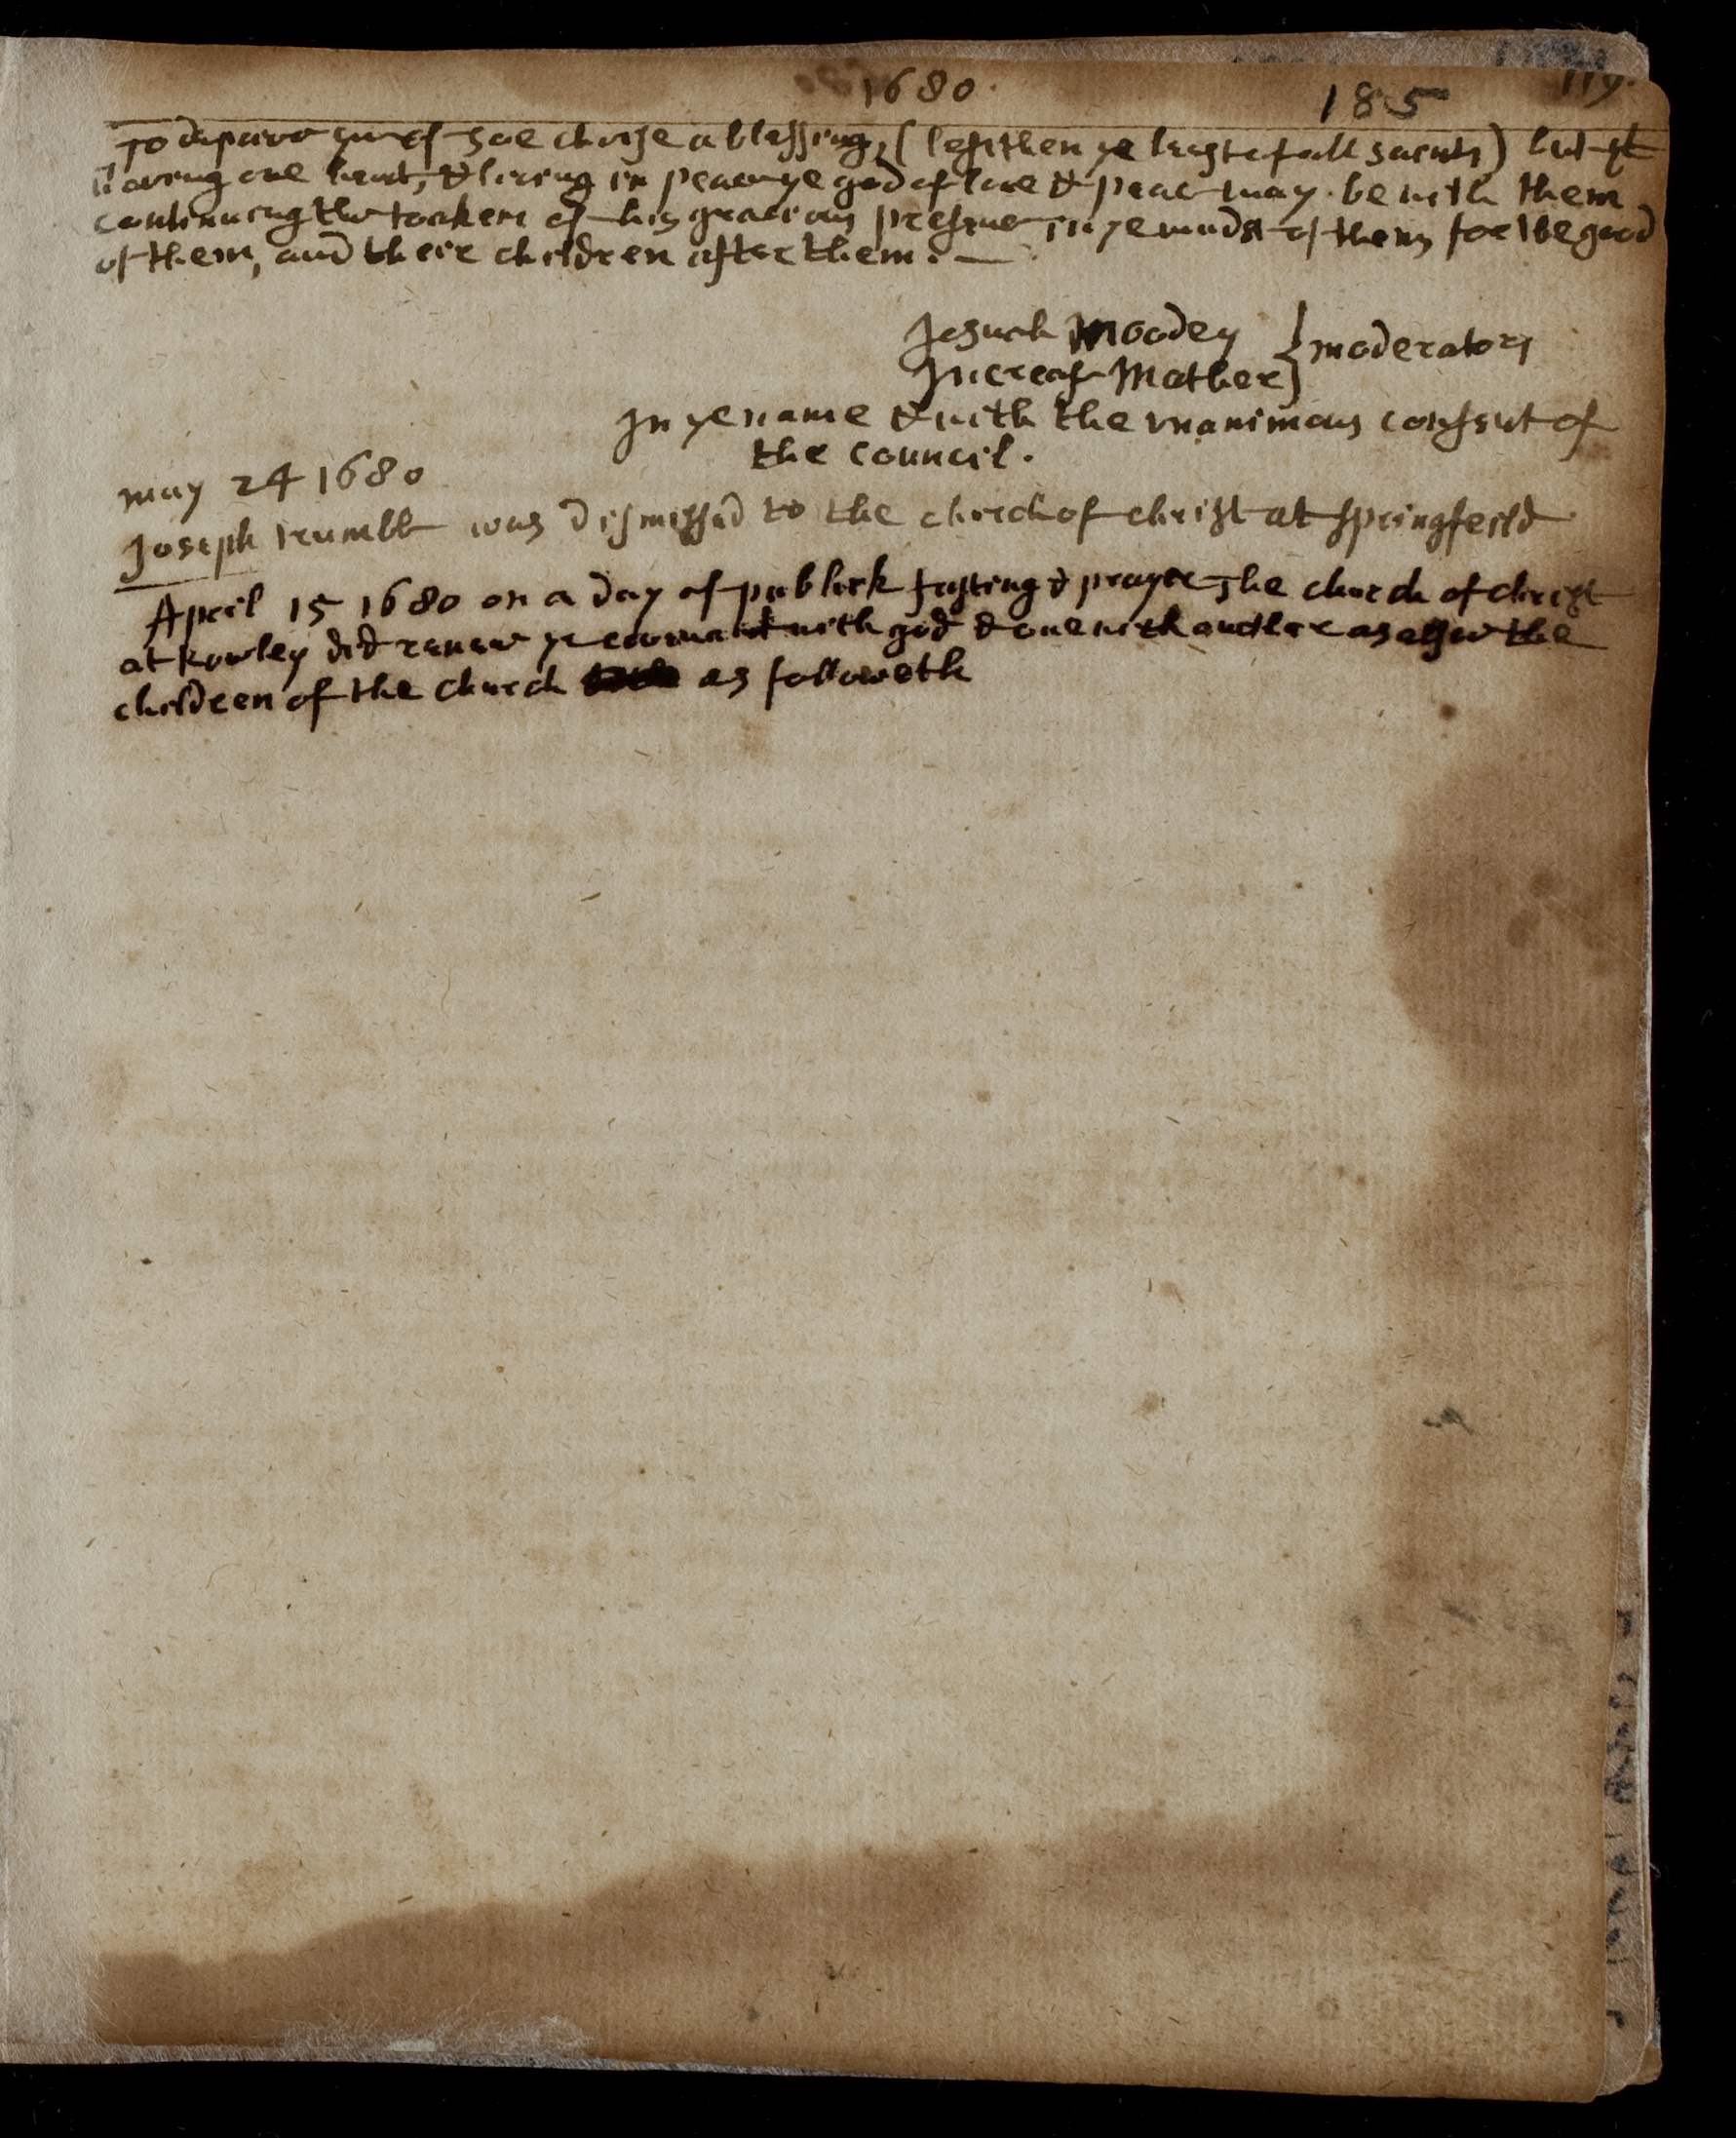 1680.
185
119.
To deprive him of soe choise a blessing, (less then ye least of all saints) but yt
haveing one heart, & liveing in peace ye god of love & peace may be with them
continueing the tooken of his gracious presence in ye midst of them for the good
of them, and their children after them. —
Josuah Moodey } moderators
Increase Mather
In ye name & with the vnanimous consent of
the council.
may 24 1680
Joseph trumble was dismissed to the church of christ at springfeild
April 15 1680 on a day of publick fasting & prayer The church of christ
at Rowley did renew ye covenant with god & one with another as allso the
children of the church as followeth